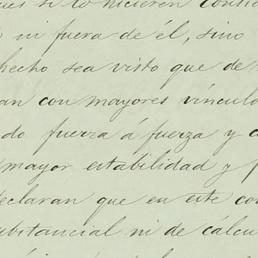 ues si lo hicieren consid
ni fuera de él, sino
hecho sea visto que de
an con mayores vínculo
do fuerza á fuerza y c
mayor estabilidad y f
declaran que en este con
substancial ni de cálcu